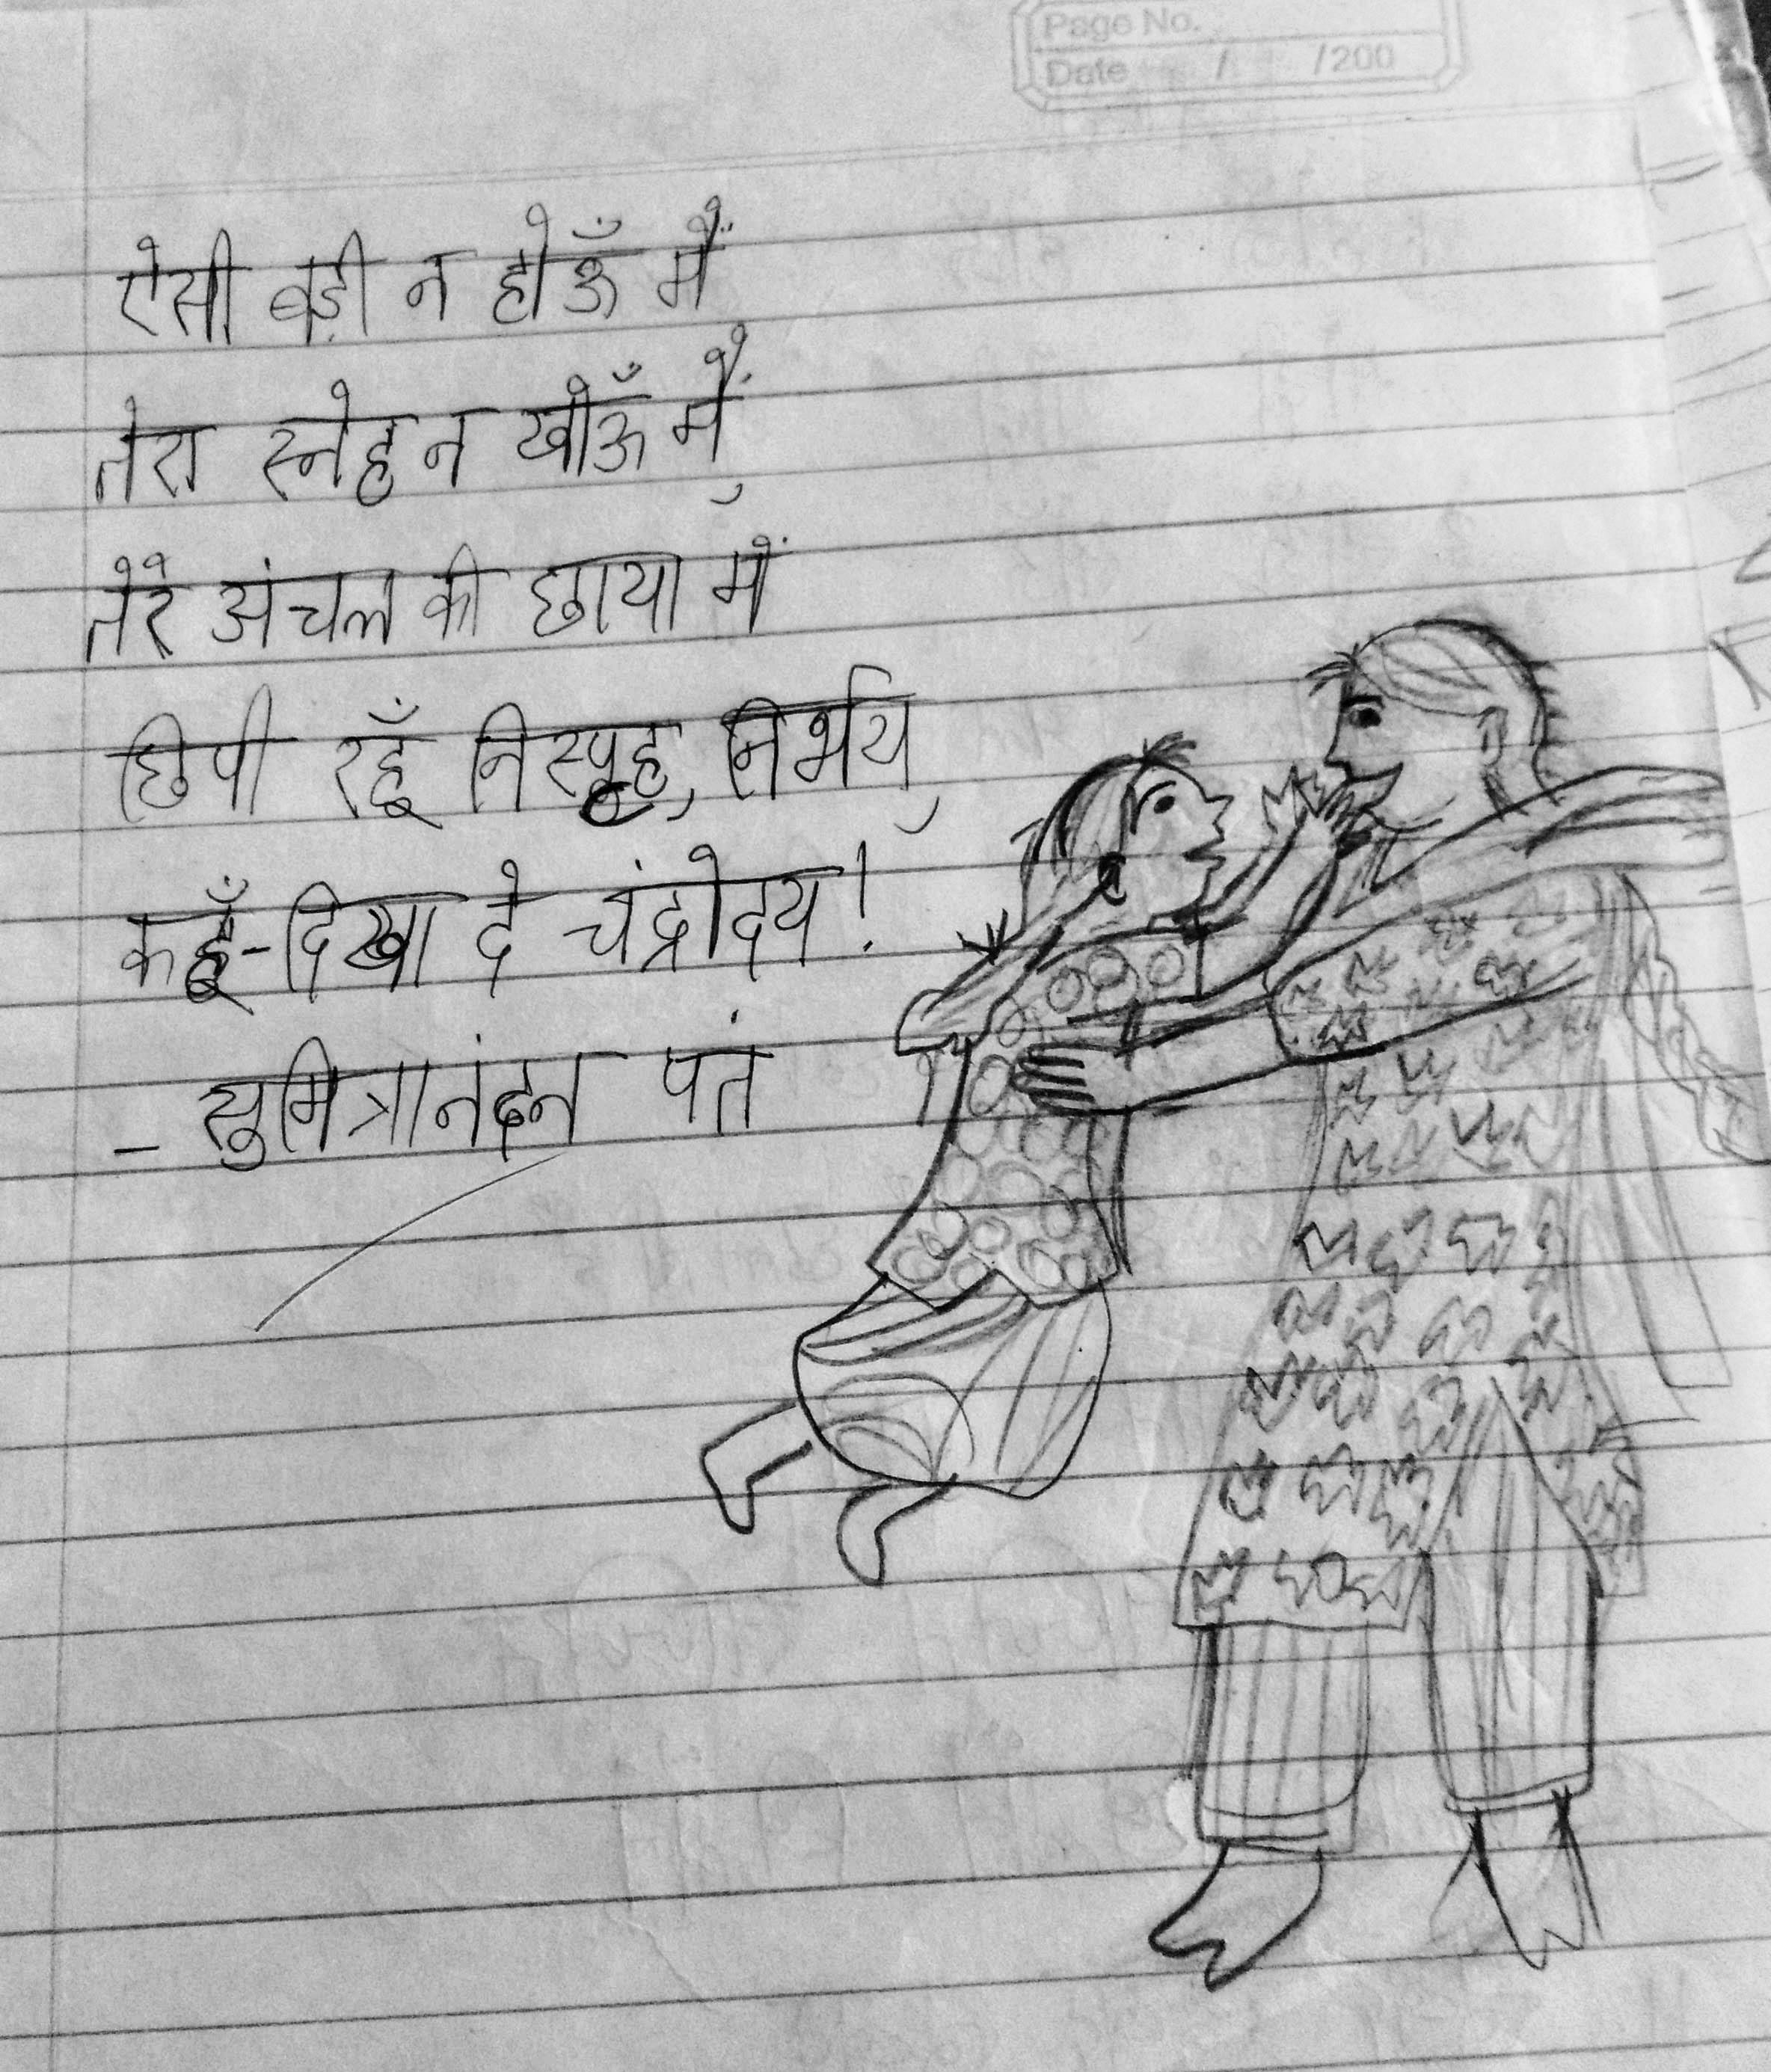 Page No.
Date / /200
ऐसी बड़ी न होऊँ मैं
तेरा स्नेह न खोऊँ मैं,
तेरे अंचल की छाया में
छिपी रहूँ निस्पृह, निर्भय,
कहूँ-दिखा दे चंद्रोदय!
- सुमित्रानंदन पंत